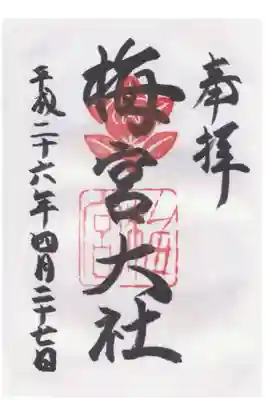 奉拝
梅宮大社
平成二十六年四月二十七日
梅宮